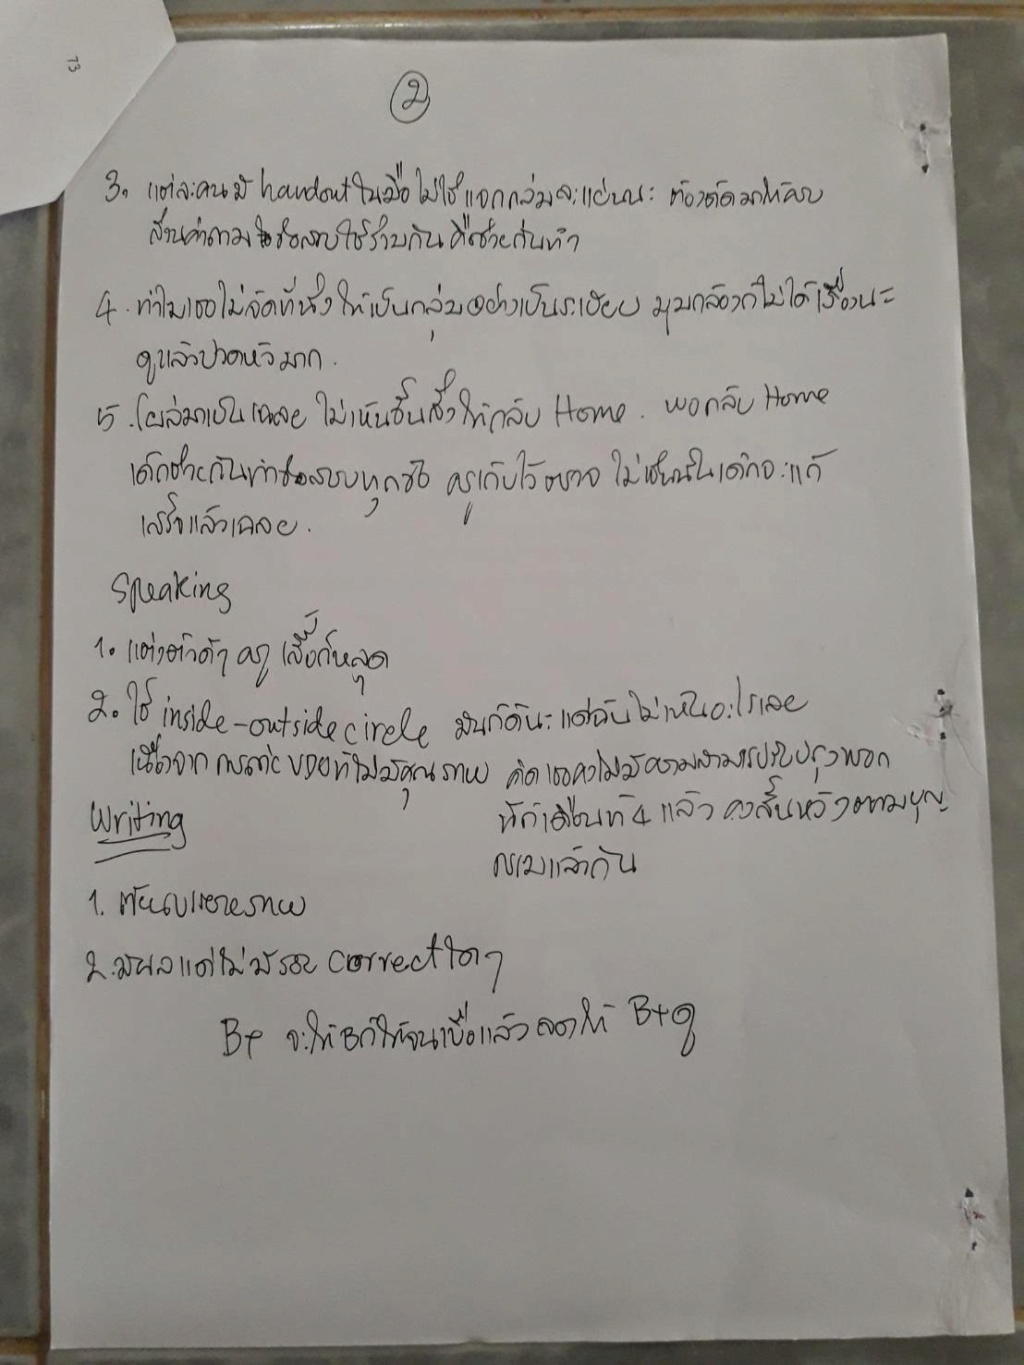 73
2
3. แต่ละคนมี handout ในมือ ไม่ใช่แจกกลุ่มละแผ่นนะ ต้องตัดมาให้ครบ
ส่วนคำถาม ข้อสอบใช้ร่วมกัน คือช่วยกันทำ
4. ทำไมเธอไม่จัดที่นั่งให้เป็นกลุ่มอย่างเป็นระเบียบ มุมกล้องก็ไม่ได้เรื่องนะ
ดูแล้วปวดหัวมาก.
5. โผล่มาเป็นเฉลย ไม่เห็นขั้นสั่งให้กลับ Home. พอกลับ Home
เด็กช่วยกันทำข้อสอบทุกข้อ ครูเก็บไว้ตรวจ ไม่เช่นนั้นเด็กจะแก้
เสร็จแล้วเฉลย.
Speaking
1. แต่งตัวดีๆ ครู เสื้อก็หลุด
2. ใช้ inside-outside circle มันก็ดีนะ แต่ฉันไม่เห็นอะไรเลย
เนื่องจาก VDO ที่ไม่มีคุณภาพ คิดเธอคงไม่มีความสามารถปรับปรุงพอก
นี่ก็เดือนที่ 4 แล้ว คงสิ้นหวังตามบุญ
กรรมแล้วกัน
Writing
1. ภาพ
2. มีผลแต่ไม่มีรอย correct ใดๆ
B+ จะให้ Bก็ให้จนเบื่อแล้ว ให้ B+ดู